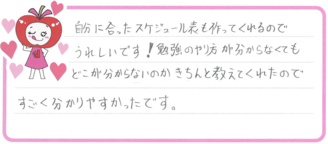 自分に合ったスケジュール表も作ってくれるので
うれしいです!勉強のやり方が分からなくても
どこが分からないのかきちんと教えてくれたので
すごく分かりやすかったです。